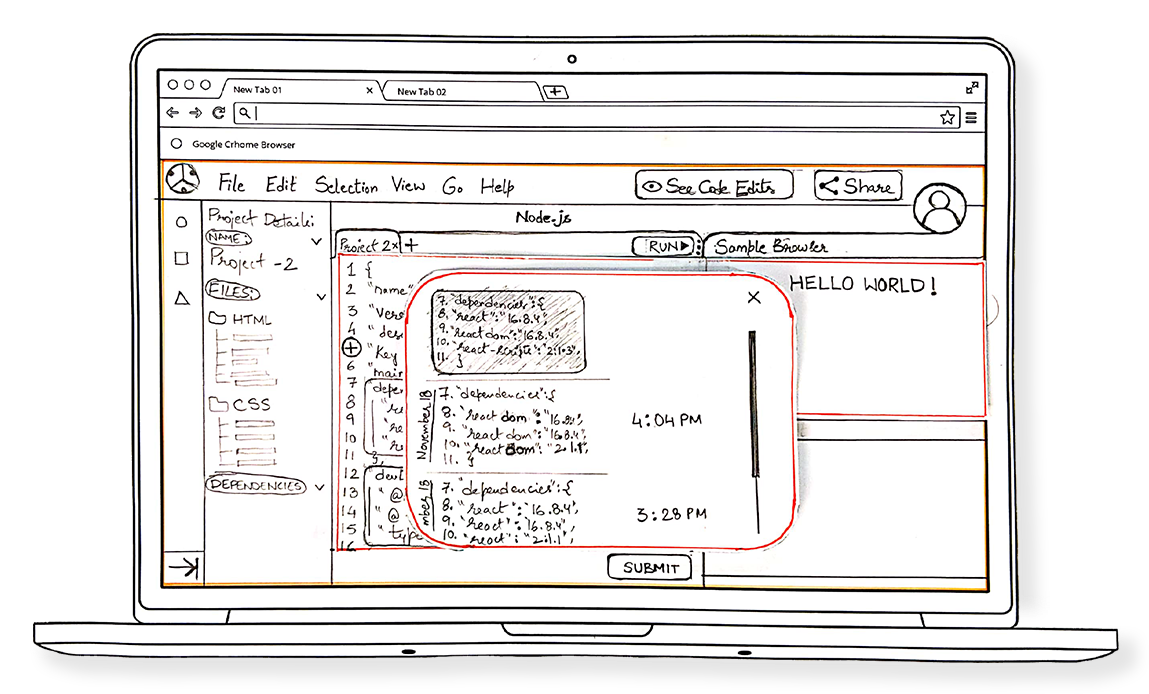 New Tab 01 ×
New Tab 02
Google Crhome Browser
File Edit Selection View Go Help
See Code Edits
Share
Project Details:
NAME:
Project -2
FILES:
HTML
CSS
DEPENDENCIES
Node.js
Project 2× +
RUN
Sample Browser
HELLO WORLD!
1 {
2 "name"
3 "Vers
4 "des
"Key
6 "main
7 "depen
8 "re
9 "re
10 "re
11 },
12 "dev
13 "@
14 "@
15 "type
16
×
7. "dependencies":{
8. "react":"16.8.4",
9. "react dom":"16.8.4",
10. "react-scripts":"2.1.3",
11. }
November 18
7. "dependencies":{
8. "react dom":"16.8.4",
9. "react dom":"16.8.4",
10. "react dom":"2.1.1",
11. }
4:04 PM
mber 18
7. "dependencies":{
8. "react":"16.8.4",
9. "react":"16.8.4",
10. "react":"2.1.1",
3:28 PM
SUBMIT